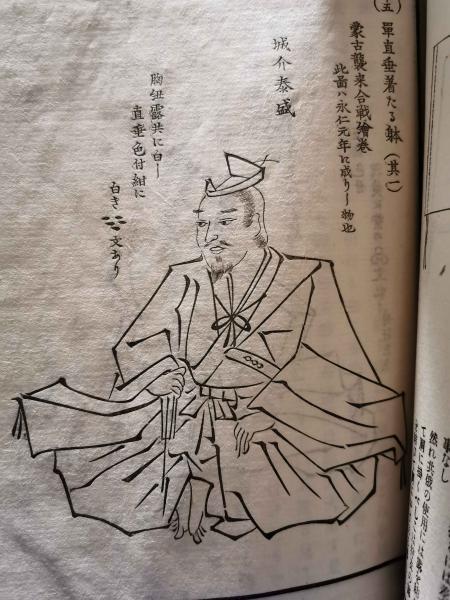 (五)單直垂着たる躰(其一)
蒙古襲来合戦繪巻
此画ハ永仁元年に成りし物也
城介泰盛
胸紐露共に白し
直垂色付紺に
白き
文あり
裏なし